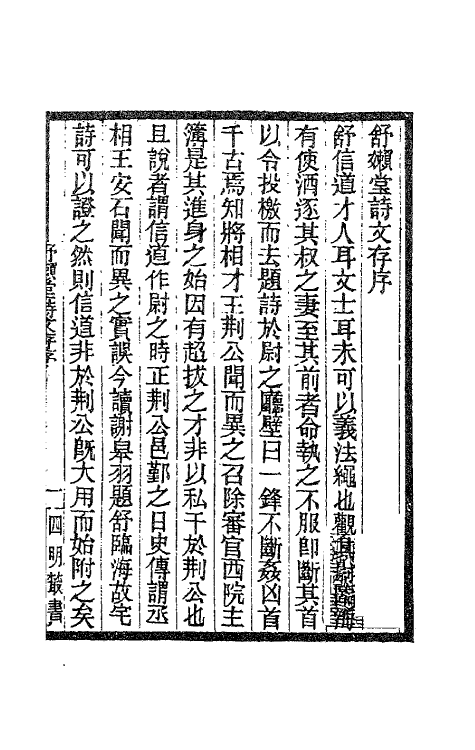 舒嬾堂詩文存序
舒信道才人耳文士耳未可以義法繩也觀其尉臨海
有使酒逐其叔之妻至其前者命執之不服即斷其首
以令投檄而去題詩於尉之廳壁曰一鋒不斷姦凶首
千古焉知將相才王荆公聞而異之召除審官西院主
簿是其進身之始因有超拔之才非以私干於荆公也
且說者謂信道作尉之時正荆公邑鄞之日史傳謂丞
相王安石聞而異之實誤今讀謝皋羽題舒臨海故宅
詩可以證之然則信道非於荆公旣大用而始附之矣
舒嬾堂詩文存序
一
四明叢書